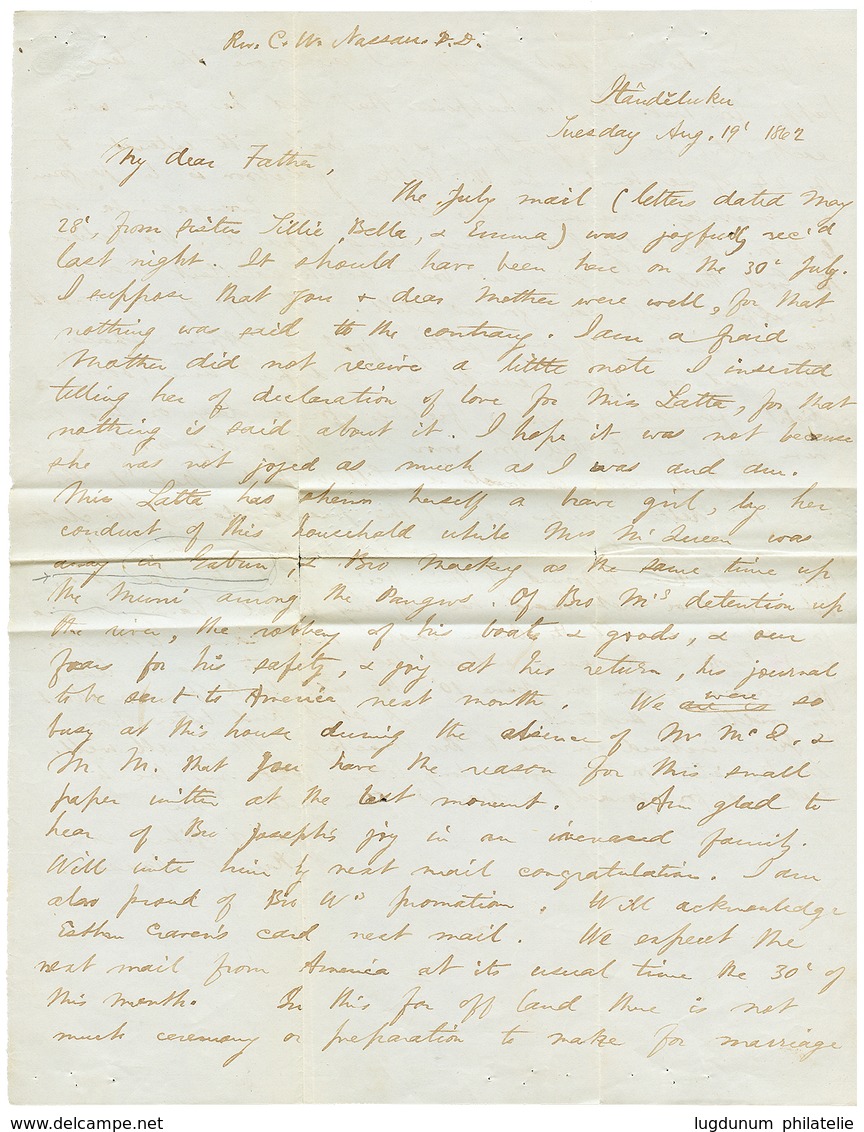 Rev. C. Wm Nassau. D.D.
Itândĕluku
Tuesday Aug. 19' 1862
My dear Father,
The July mail (letters dated May
28', from sisters Lillie, Bella, & Emma) was joyfully rec'd
last night. It should have been here on the 30' July.
I suppose that you & dear Mother were well, for that
nothing was said to the contrary. I am afraid
Mother did not receive a little note I inserted
telling her of declaration of love for Miss Latta, for that
nothing is said about it. I hope it was not because
she was not joyed as much as I was and am.
Miss Latta has shewn herself a brave girl, by her
conduct of this household while Mrs McQueen was
away in Gabun, & Bro Mackey at the same time up
the Muni among the Pangwes. Of Bro M's detention up
the river, the robbery of his boats & goods, & our
fears for his safety, & joy at his return, his journal
to be sent to America next month. We are so were so
busy at this house during the absence of Mr McQ. &
Mr M. that you have the reason for this small
paper written at the last moment. Am glad to
hear of Bro Joseph's joy in an increased family.
Will write him by next mail congratulation. I am
also proud of Bro Wm's promotion. Will acknowledge
Esther Craven's card next mail. We expect the
next mail from America at its usual time the 30' of
this month. In this far off land there is not
much ceremony or preparation to make for marriage
www.delcampe.net
lugdunum philatelie